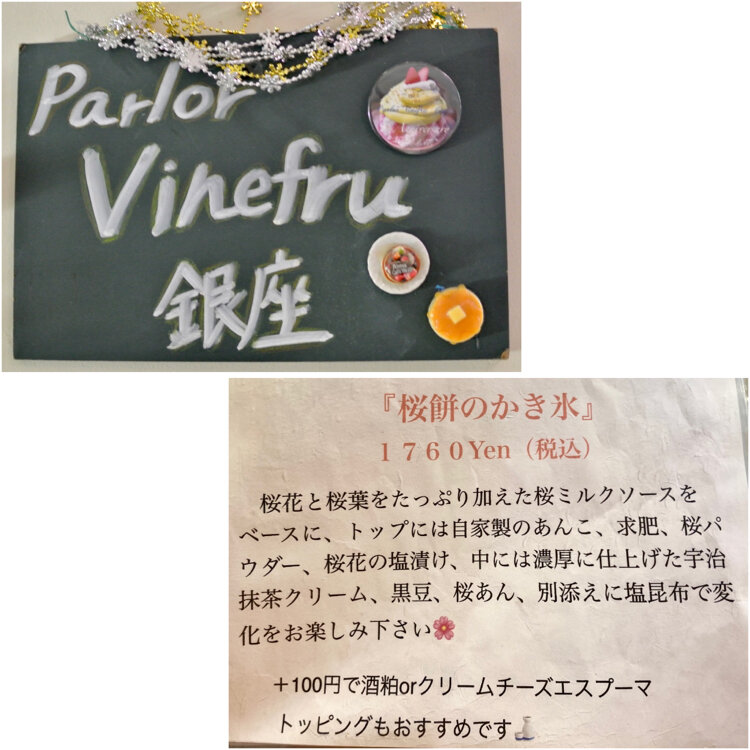 Parlor
Vinefru
銀座
『桜餅のかき氷』
１７６０Yen（税込）
桜花と桜葉をたっぷり加えた桜ミルクソースを
ベースに、トップには自家製のあんこ、求肥、桜パ
ウダー、桜花の塩漬け、中には濃厚に仕上げた宇治
抹茶クリーム、黒豆、桜あん、別添えに塩昆布で変
化をお楽しみ下さい🌸
＋100円で酒粕orクリームチーズエスプーマ
トッピングもおすすめです🍶